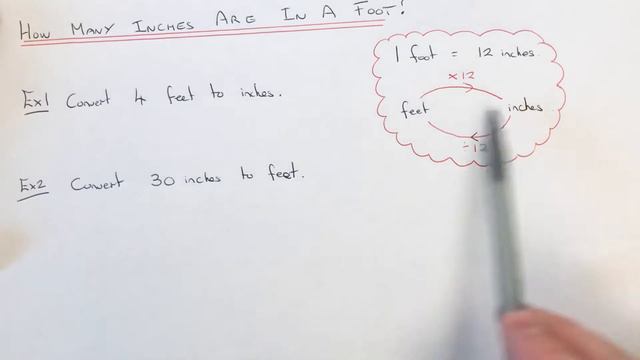 HOW MANY INCHES ARE IN A FOOT?
1 foot = 12 inches.
×12
feet inches
÷12
Ex1 Convert 4 feet to inches.
Ex2 Convert 30 inches to feet.